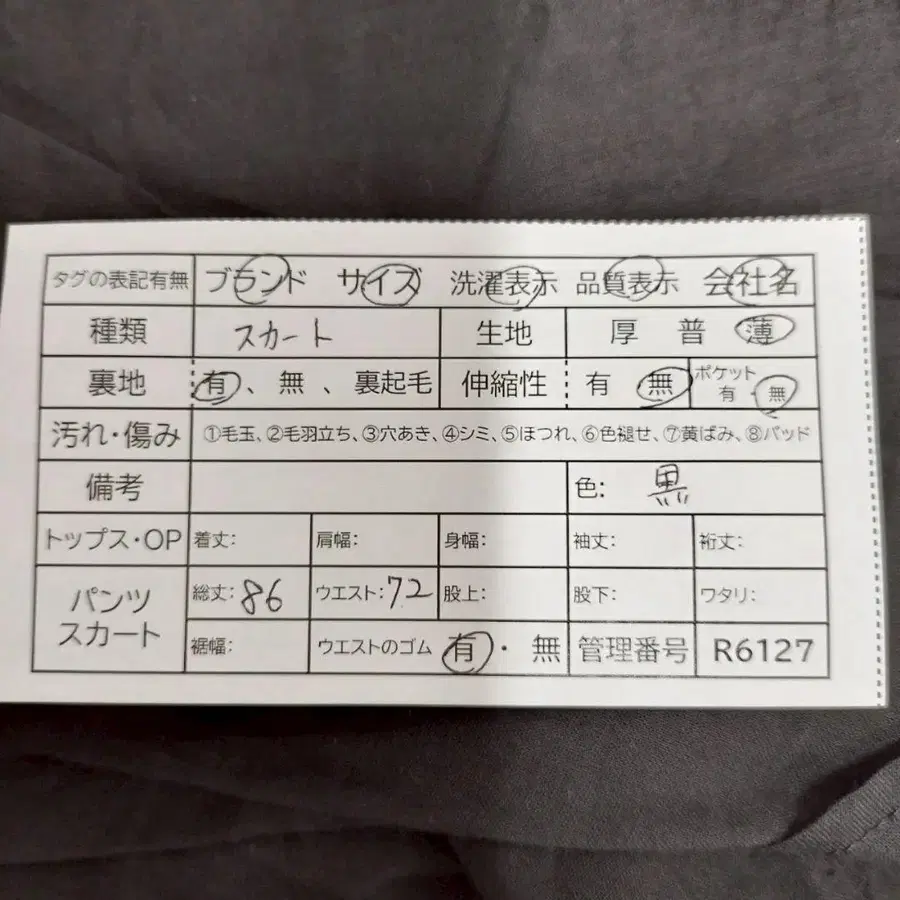 タグの表記有無 ブランド サイズ 洗濯表示 品質表示 会社名
種類 スカート 生地 厚 普 薄
裏地 有、無、裏起毛 伸縮性 有 無 ポケット 有・無
汚れ・傷み ①毛玉、②毛羽立ち、③穴あき、④シミ、⑤ほつれ、⑥色褪せ、⑦黄ばみ、⑧パッド
備考 色: 黒
トップス・OP 着丈: 肩幅: 身幅: 袖丈: 裄丈:
パンツ スカート 総丈: 86 ウエスト: 72 股上: 股下: ワタリ:
裾幅: ウエストのゴム 有・無 管理番号 R6127